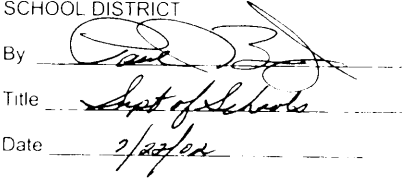 SCHOOL DISTRICT
By
Title Supt of Schools
Date 7/22/02